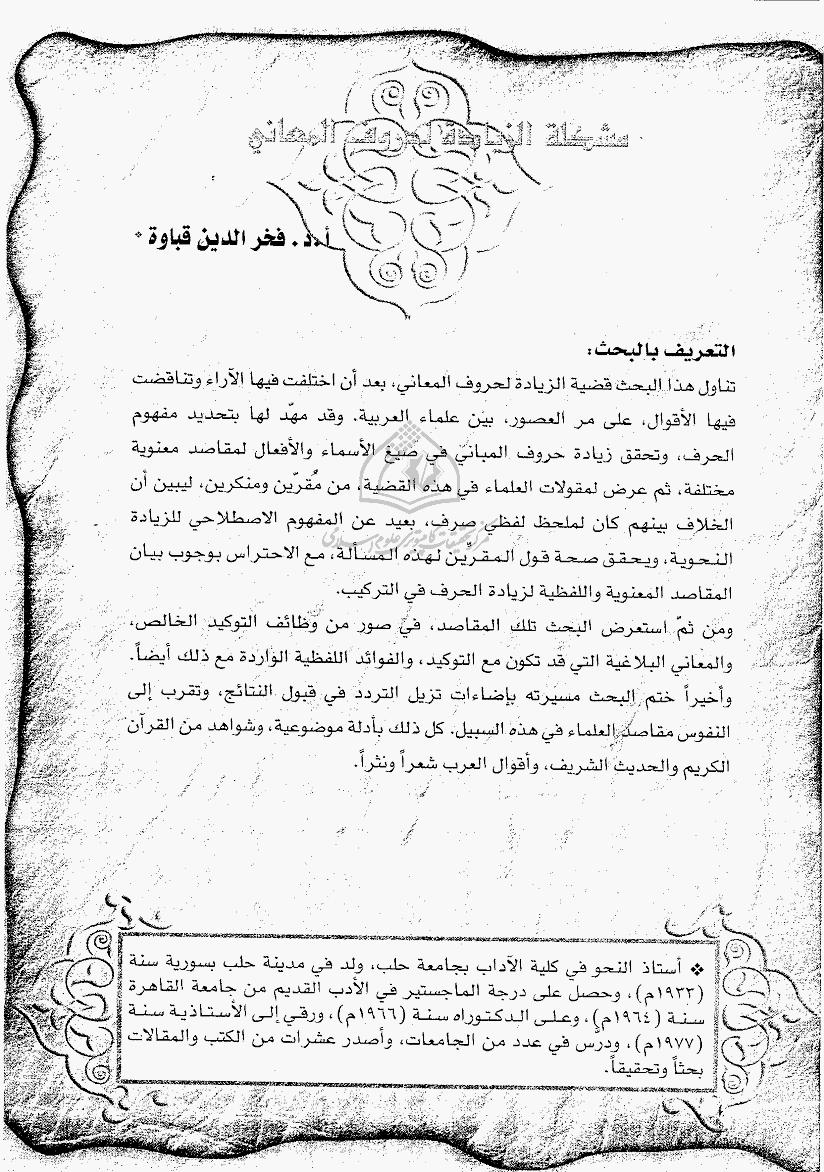 مشكلة الزيادة لحروف المعاني
أ.د. فخر الدين قباوة *
التعريف بالبحث:
تناول هذا البحث قضية الزيادة لحروف المعاني، بعد أن اختلفت فيها الآراء وتناقضت
فيها الأقوال، على مر العصور، بين علماء العربية. وقد مهّد لها بتحديد مفهوم
الحرف، وتحقق زيادة حروف المباني في صيغ الأسماء والأفعال لمقاصد معنوية
مختلفة، ثم عرض لمقولات العلماء في هذه القضية، من مُقرّين ومنكرين، ليبين أن
الخلاف بينهم كان لملحظ لفظي صرف، بعيد عن المفهوم الاصطلاحي للزيادة
النحوية، ويحقق صحة قول المقرّين لهذه المسألة، مع الاحتراس بوجوب بيان
المقاصد المعنوية واللفظية لزيادة الحرف في التركيب.
ومن ثمّ استعرض البحث تلك المقاصد، في صور من وظائف التوكيد الخالص،
والمعاني البلاغية التي قد تكون مع التوكيد، والفوائد اللفظية الواردة مع ذلك أيضاً.
وأخيراً ختم البحث مسيرته بإضاءات تزيل التردد في قبول النتائج، وتقرب إلى
النفوس مقاصد العلماء في هذه السبيل. كل ذلك بأدلة موضوعية، وشواهد من القرآن
الكريم والحديث الشريف، وأقوال العرب شعراً ونثراً.
❖ أستاذ النحو في كلية الآداب بجامعة حلب، ولد في مدينة حلب بسورية سنة
(١٩٣٣م)، وحصل على درجة الماجستير في الأدب القديم من جامعة القاهرة
سنة (١٩٦٤م)، وعلى الدكتوراه سنة (١٩٦٦م)، ورقي إلى الأستاذية سنة
(١٩٧٧م)، ودرّس في عدد من الجامعات، وأصدر عشرات من الكتب والمقالات
بحثاً وتحقيقاً.